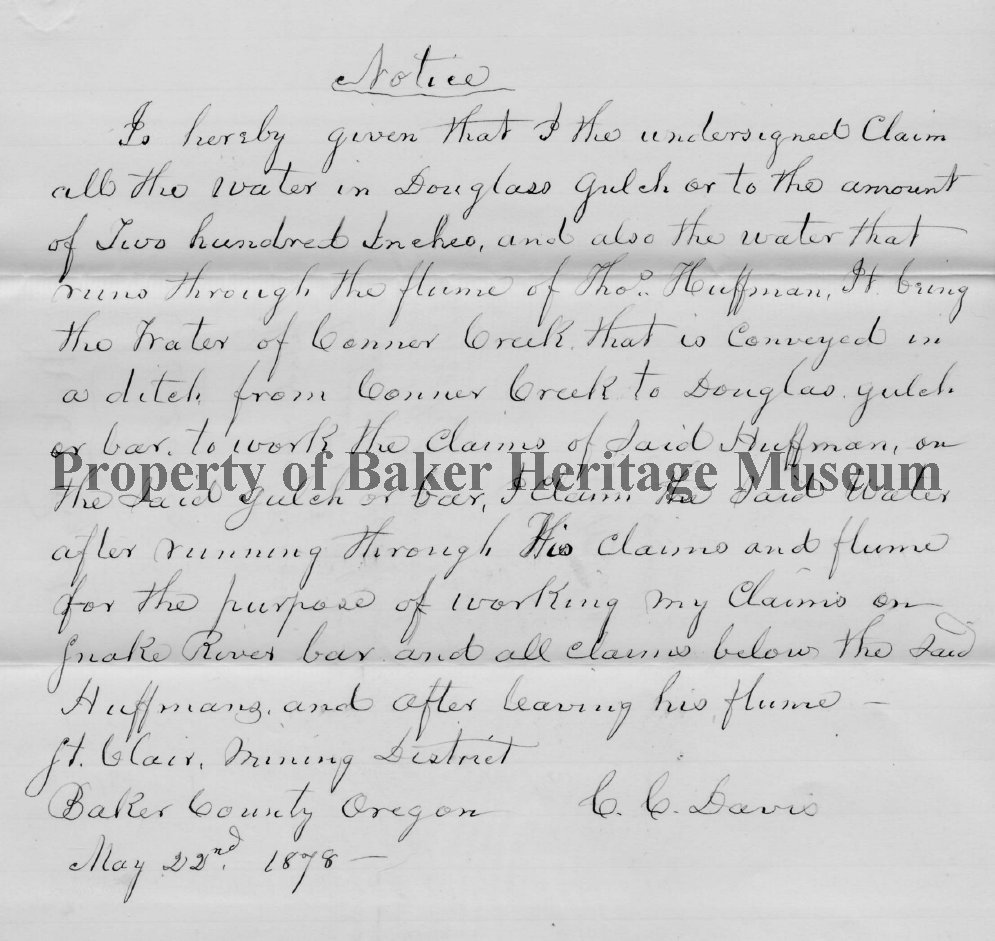 Notice
Is hereby given that I the undersigned Claim
all the water in Douglass Gulch or to the amount
of Two hundred Inches, and also the water that
runs through the flume of Thos. Huffman, It being
the Water of Conner Creek that is Conveyed in
a ditch from Conner Creek to Douglas gulch
or bar. to work the Claims of Said Huffman, on
Property of Baker Heritage Museum
the Said gulch or bar, I Claim the Said Water
after running through His Claims and flume
for the purpose of working my Claims on
Snake River bar and all claims below the Said
Huffmans, and after leaving his flume –
St. Clair, Mining District
Baker County Oregon C. C. Davis
May 22nd. 1878 –